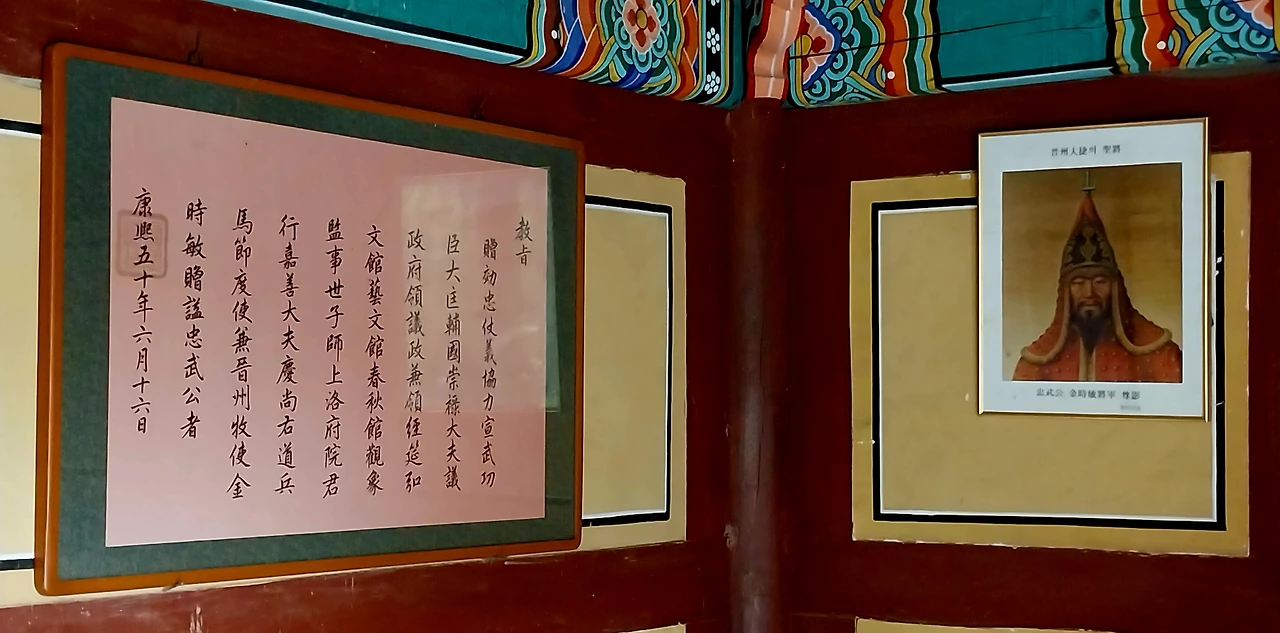 教旨
贈効忠仗義協力宣武功
臣大匡輔國崇祿大夫議
政府領議政兼領經筵弘
文館藝文館春秋館觀象
監事世子師上洛府院君
行嘉善大夫慶尚右道兵
馬節度使兼晉州牧使金
時敏贈諡忠武公者
康熙五十年六月十六日
晋州大捷의 聖將
忠武公 金時敏將軍 尊影